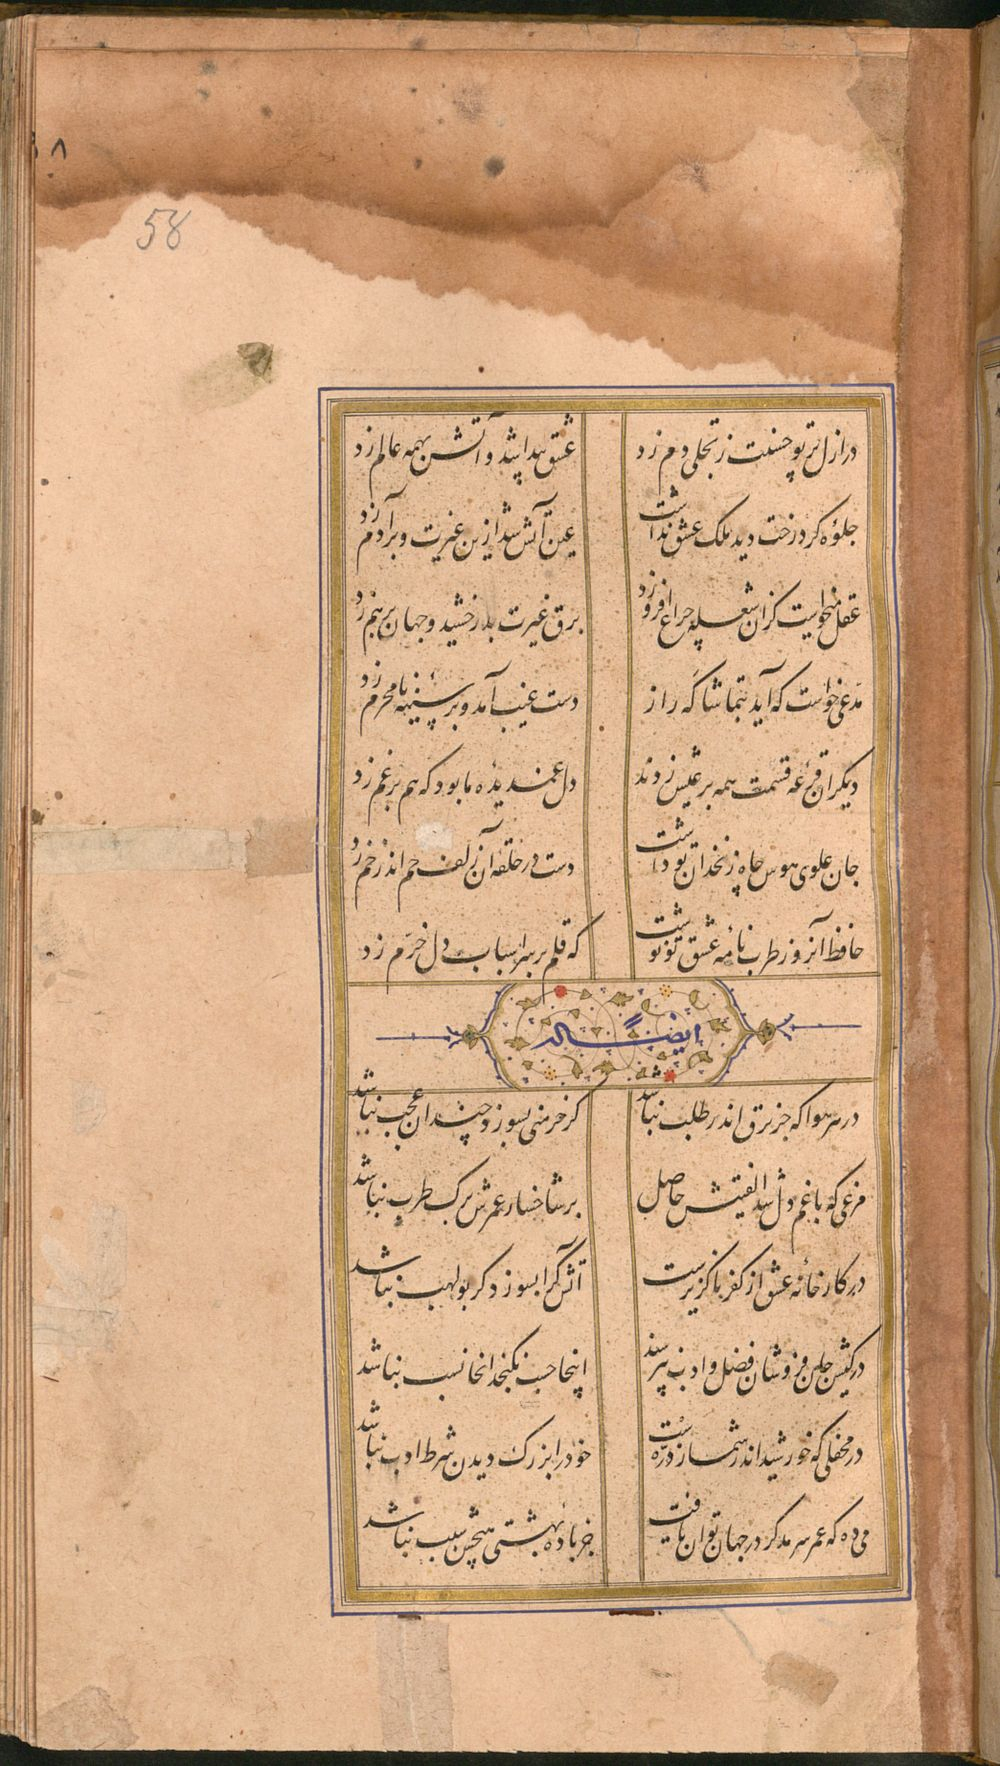 58
در ازل پرتو حسنت ز تجلی دم زد
عشق پیدا شد و آتش بهمه عالم زد
جلوه کرد رخت دید ملک عشق نداشت
عین آتش شد ازین غیرت و بر آدم زد
عقل میخواست کزان شعله چراغ افروزد
برق غیرت بدرخشید و جهان بر هم زد
مدعی خواست که آید بتماشاگه راز
دست غیب آمد و بر سینه نامحرم زد
دیگران قرعه قسمت همه بر عیش زدند
دل غمدیده ما بود که هم بر غم زد
جان علوی هوس چاه زنخدان تو داشت
دست در حلقه آن زلف خم اندر خم زد
حافظ آنروز طربنامه عشق تو نوشت
که قلم بر سر اسباب دل خرم زد
ایضاً له
در هر هوا که جز برق اندر طلب نباشد
گر خرمنی بسوزد چندان عجب نباشد
مرغی که با غم دل شد الفتیش حاصل
بر شاخسار عمرش برگ طرب نباشد
در کارخانه عشق از کفر ناگزیرست
آتش کرا بسوزد گر بولهب نباشد
در کیش جان فروشان فضل و ادب
اینجا حسب نگنجد انجا نسب نباشد
در محفلی که خورشید اندر شمار ذره است
خود را بزرگ دیدن شرط ادب نباشد
می ده که عمر سرمد گر در جهان توان یافت
جز باده بهشتی هیچش سبب نباشد